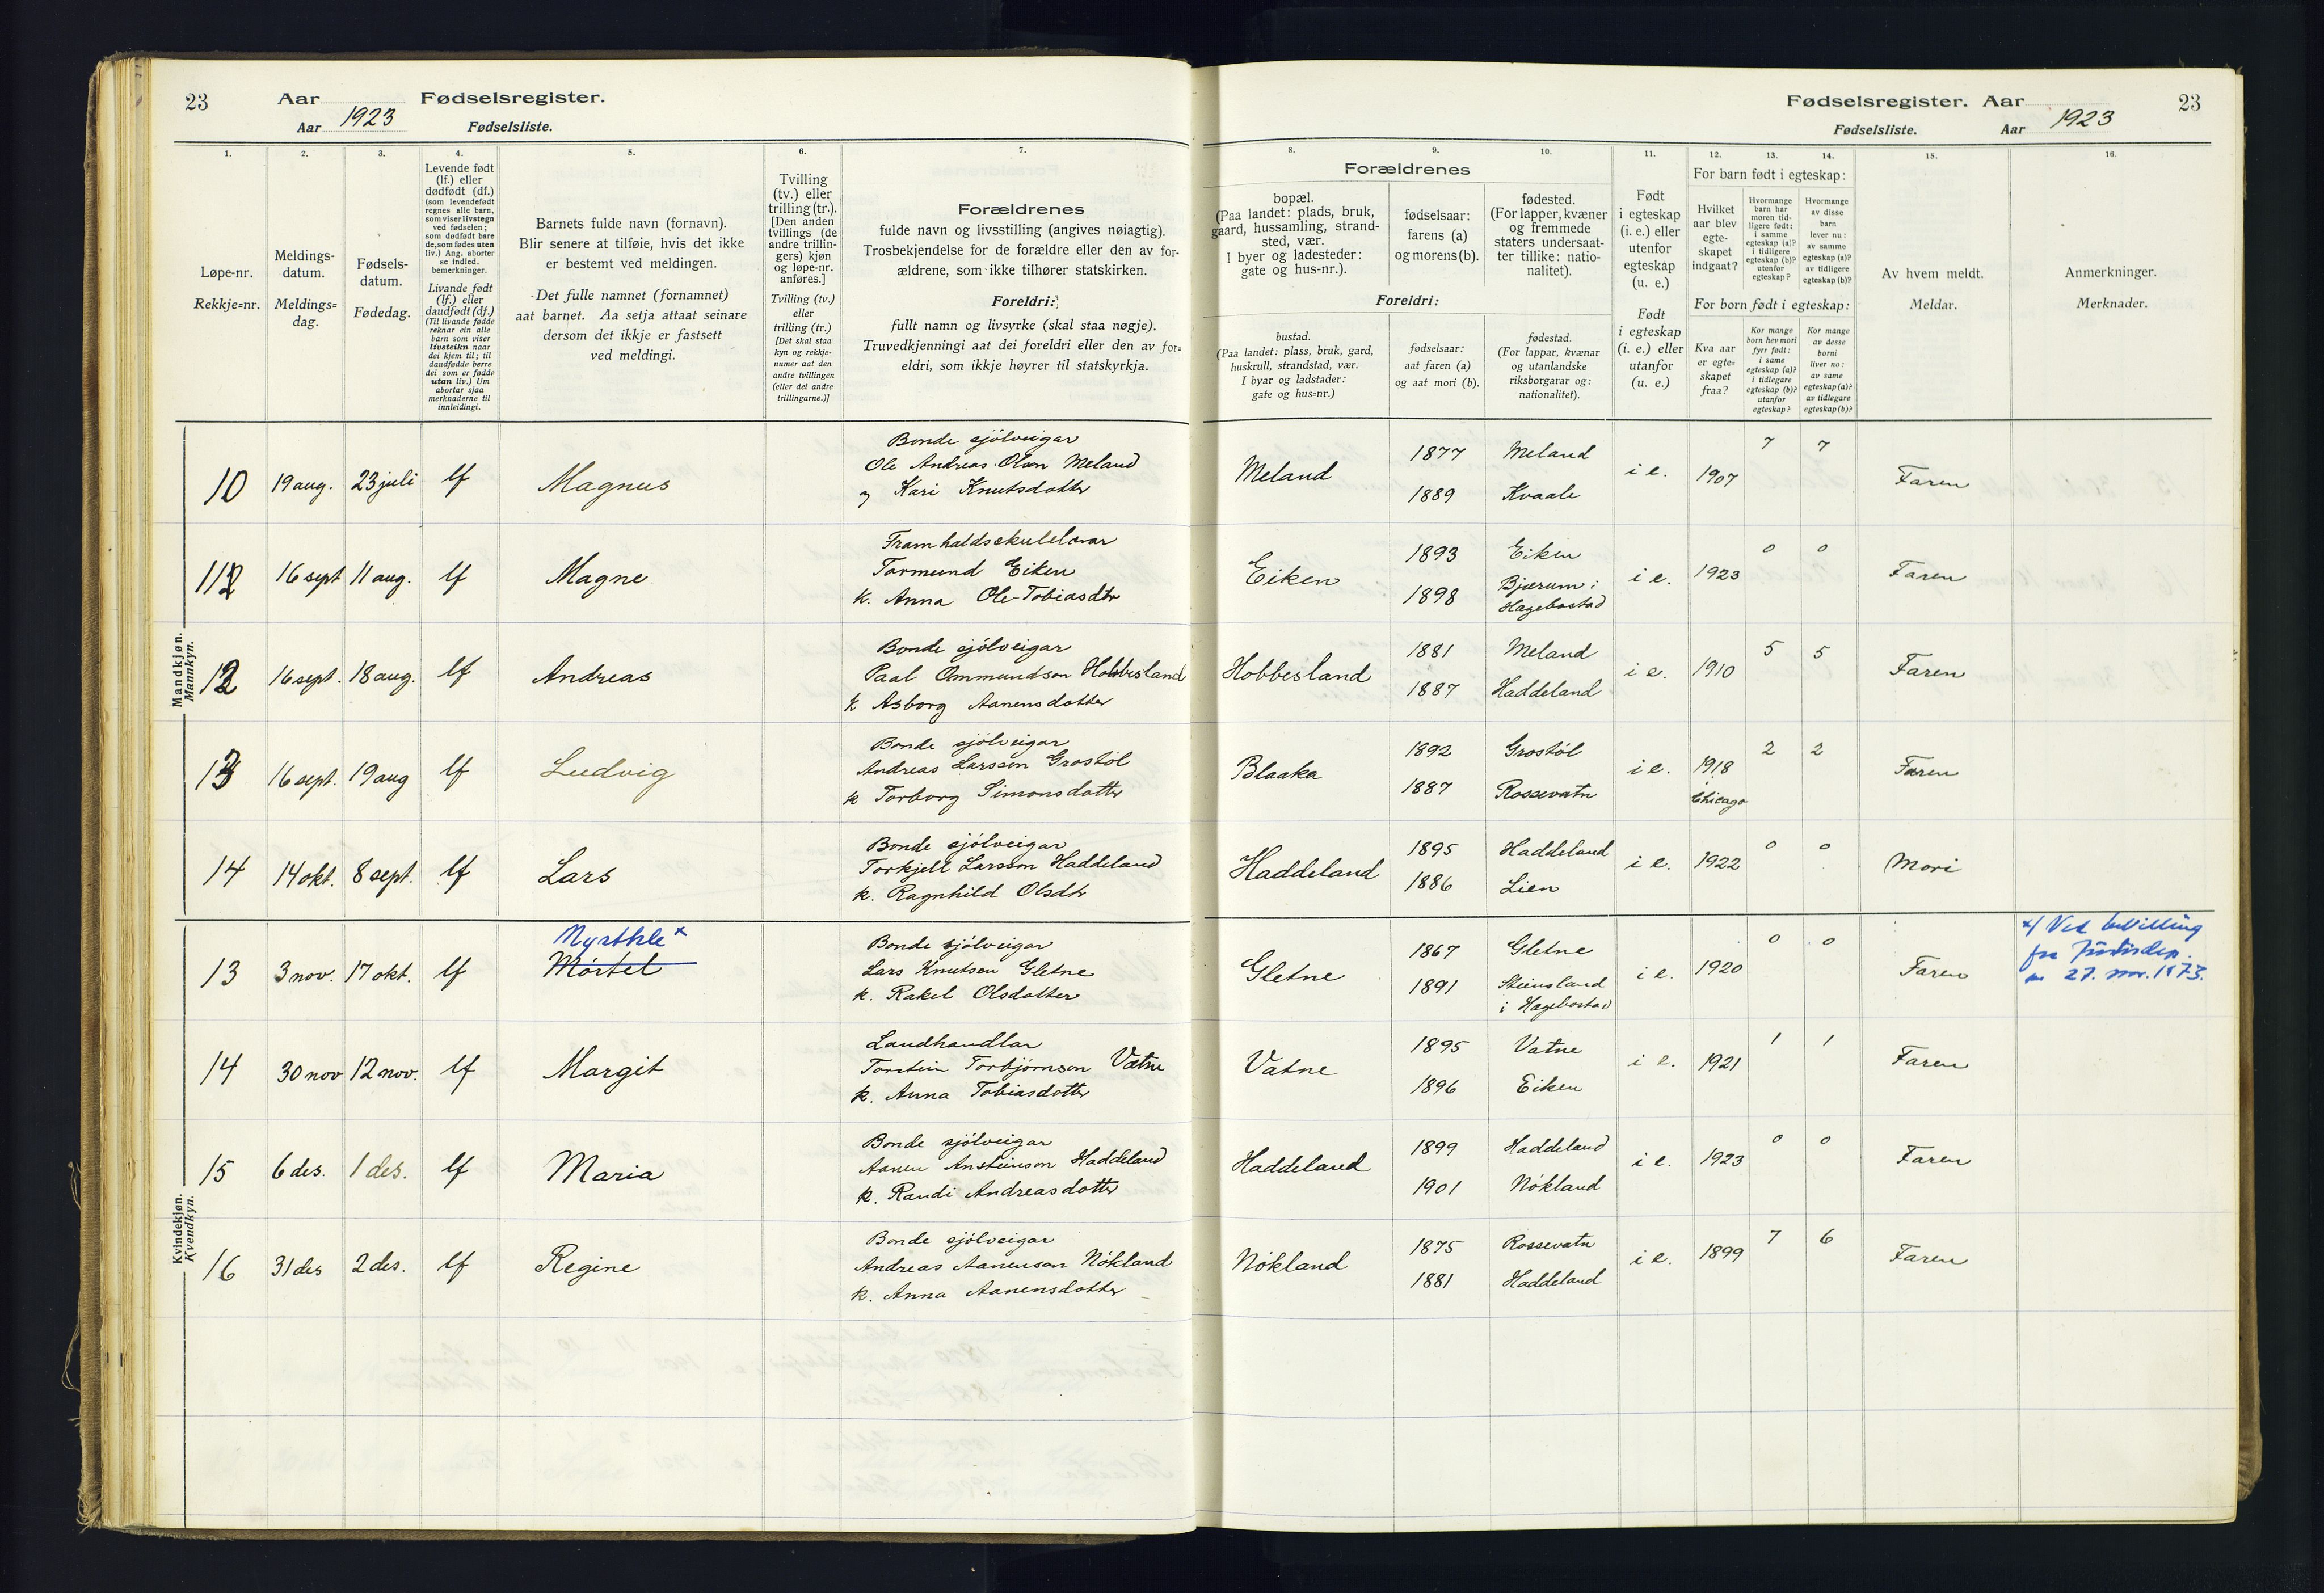 23 Aar Fødselsregister.
Aar 1923 Fødselsliste.
1. 2. 3. 4. 5. 6. 7.
Løpe-nr.
Rekkje=nr.
Meldings-
datum.
Meldings=
dag.
Fødsels-
datum.
Fødedag.
Levende født
(lf.) eller
dødfødt (df.)
(som levendefødt
regnes alle barn,
som viser livstegn
ved fødselen;
som dødfødt bare
de, som fødes uten
liv.) Ang. aborter
se indled.
bemerkninger.
Livande født
(lf.) eller
daudfødt (df.)
(Til livande fødde
reknar ein alle
barn som viser
livsteikn naar
dei kjem til; til
daudfødde berre
dei som er fødde
utan liv.) Um
abortar sjaa
merknaderne til
innleidingi.
Barnets fulde navn (fornavn).
Blir senere at tilføie, hvis det ikke
er bestemt ved meldingen.
Det fulle namnet (fornamnet)
aat barnet. Aa setja attaat seinare
dersom det ikkje er fastsett
ved meldingi.
Tvilling
(tv.) eller
trilling (tr.).
[Den anden
tvillings (de
andre trillin-
gers) kjøn
og løpe-nr.
anføres.]
Tvilling (tv.)
eller
trilling (tr.)
[Det skal staa
kyn og rekkje-
numer aat den
andre tvillingen
(eller dei andre
trillingarne.)]
Forældrenes
fulde navn og livsstilling (angives nøiagtig).
Trosbekjendelse for de forældre eller den av for-
ældrene, som ikke tilhører statskirken.
Foreldri:
fullt namn og livsyrke (skal staa nøgje).
Truvedkjenningi aat dei foreldri eller den av for=
eldri, som ikkje høyrer til statskyrkja.
Mandkjøn.
Mannkyn.
10 19 aug. 23 juli lf Magnus
Bonde sjölveigar
Ole Andreas Olsen Meland
og Kari Knutsdotter
11 16 sept 11 aug. lf Magne
Framhaldsskulelærar
Tormund Eiken
k. Anna Ole-Tobiasdtr
12 16 sept. 18 aug. lf Andreas
Bonde sjölveigar
Paal Ommundson Hobbesland
k Asborg Aanensdotter
13 16 sept. 19 aug lf Ludvig
Bonde sjölveigar
Andreas Larsson Grostöl
k Torborg Simonsdotter
14 14 okt. 8 sept. lf Lars
Bonde sjölveigar
Torkjell Larsson Haddeland
k. Ragnhild Olsdtr
Kvindekjøn.
Kvendkyn.
Myrthle x
13 3 nov. 17 okt. lf Mörtel
Bonde sjölveigar
Lars Knutsen Gletne
k. Rakel Olsdotter
14 30 nov 12 nov. lf Margit
Landhandlar
Torstein Torbjörnson Vatne
k. Anna Tobiasdotter
15 6 des. 1 des. lf Maria
Bonde sjölveigar
Aanen Ansteinson Haddeland
k. Randi Andreasdotter
16 31 des 2 des. lf Regine
Bonde sjölveigar
Andreas Aanenson Nökland
k. Anna Aanensdotter
Fødselsregister. Aar 23
Fødselsliste. Aar 1923
8. 9. 10. 11. 12. 13. 14. 15. 16.
Forældrenes
bopæl.
(Paa landet: plads, bruk,
gaard, hussamling, strand-
sted, vær.
I byer og ladesteder:
gate og hus-nr.).
fødselsaar:
farens (a)
og morens (b).
fødested.
(For lapper, kvæner
og fremmede
staters undersaat-
ter tillike: natio-
nalitet).
Foreldri:
bustad.
(Paa landet: plass, bruk, gard,
huskrull, strandstad, vær.
I byar og ladstader:
gate og hus=nr.)
fødselsaar:
aat faren (a)
og aat mori (b).
fødestad.
(For lappar, kvænar
og utanlandske
riksborgarar og:
nationalitet).
Født
i egteskap
(i. e.) eller
utenfor
egteskap
(u. e.)
Født
i egteskap
(i. e.) eller
utanfor
(u. e.)
For barn født i egteskap:
Hvilket
aar blev
egte-
skapet
indgaat?
Hvormange
barn har
moren tid-
ligere født:
i samme
egteskap (a)?
i tidligere
egteskap (b)?
utenfor
egteskap?
Hvormange
av disse
barn
lever nu:
av samme
egteskap (a)?
av tidligere
egteskap (b)?
For born født i egteskap:
Kva aar
er egte-
skapet
fraa?
Kor mange
born hev mori
fyrr født:
i same
egteskap (a)?
i tidlegare
egteskap (b)?
utanfor
egteskap?
Kor mange
av desse
borni
liver no:
av same
egteskap (a)?
av tidlegare
egteskap (b)?
Av hvem meldt.
Meldar.
Anmerkninger.
Merknader.
Meland 1877 Meland i e. 1907 7 7 Faren
1889 Kvaale
Eiken 1893 Eiken i e. 1923 0 0 Faren
1898 Bjærum i
Hægebostad
Hobbesland 1881 Meland i e. 1910 5 5 Faren
1887 Haddeland
Blaaka 1892 Grostöl i e. 1918 2 2 Faren
1887 Rossevatn i Chicago
Haddeland 1895 Haddeland i e. 1922 0 0 Mori
1886 Lien
Gletne 1867 Gletne i e. 1920 0 0 Faren
1891 Steinsland
i Hægebostad
x) Ved bevilling
fra Justisdep.
av 27. nov. 1973.
Vatne 1895 Vatne i e. 1921 1 1 Faren
1896 Eiken
Haddeland 1899 Haddeland i e. 1923 0 0 Faren
1901 Nökland
Nökland 1875 Rossevatn i e. 1899 7 6 Faren
1881 Haddeland